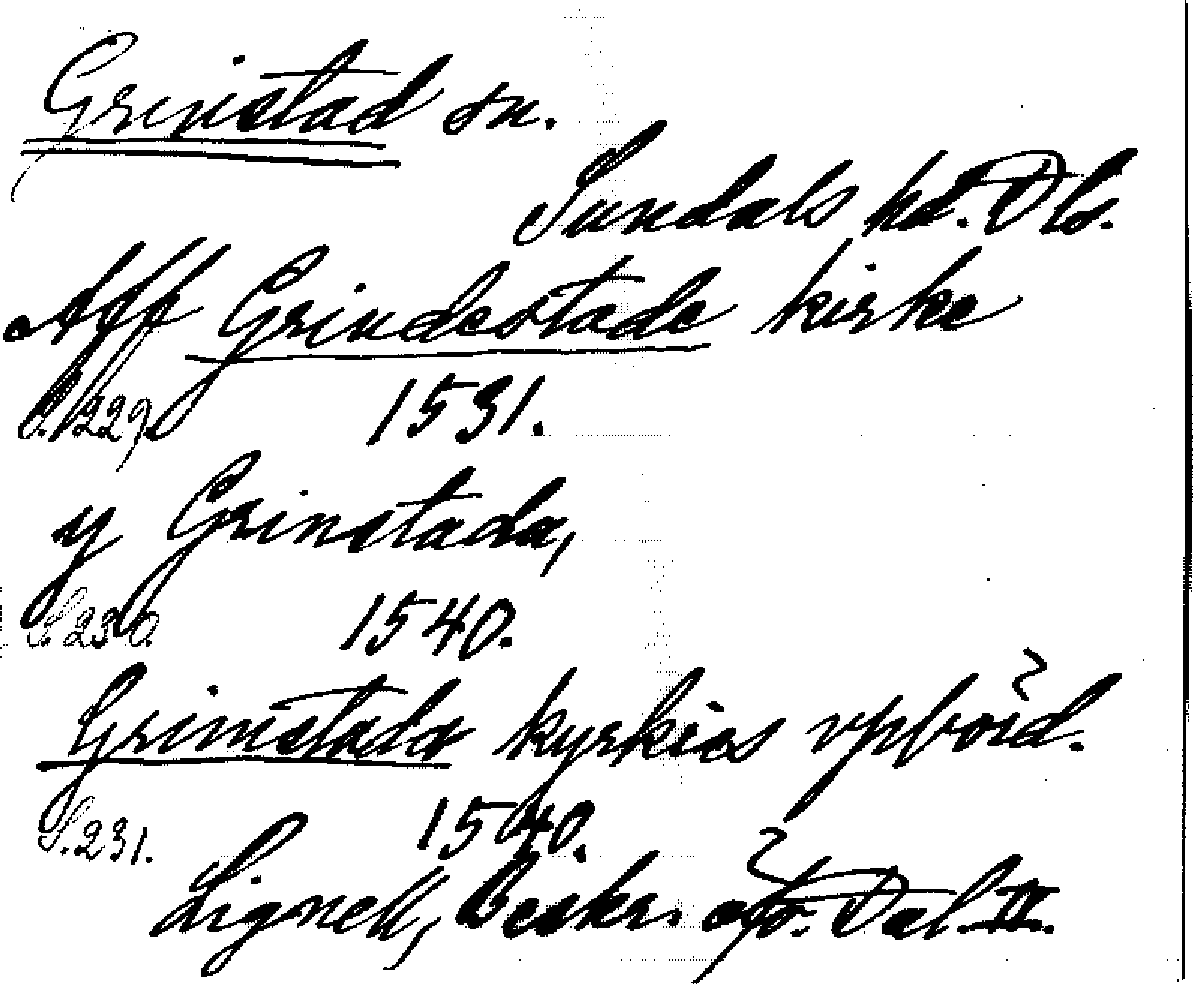 Grinstad sn.
Sundals hd. Dls.
Aff Grindestade kirke
S. 229. 1531.
y Grinstada,
S. 230. 1540.
Grimstada kyrkies vpbörd.
S. 231. 1540.
Lignell, Beskr. öfv. Dal. II.